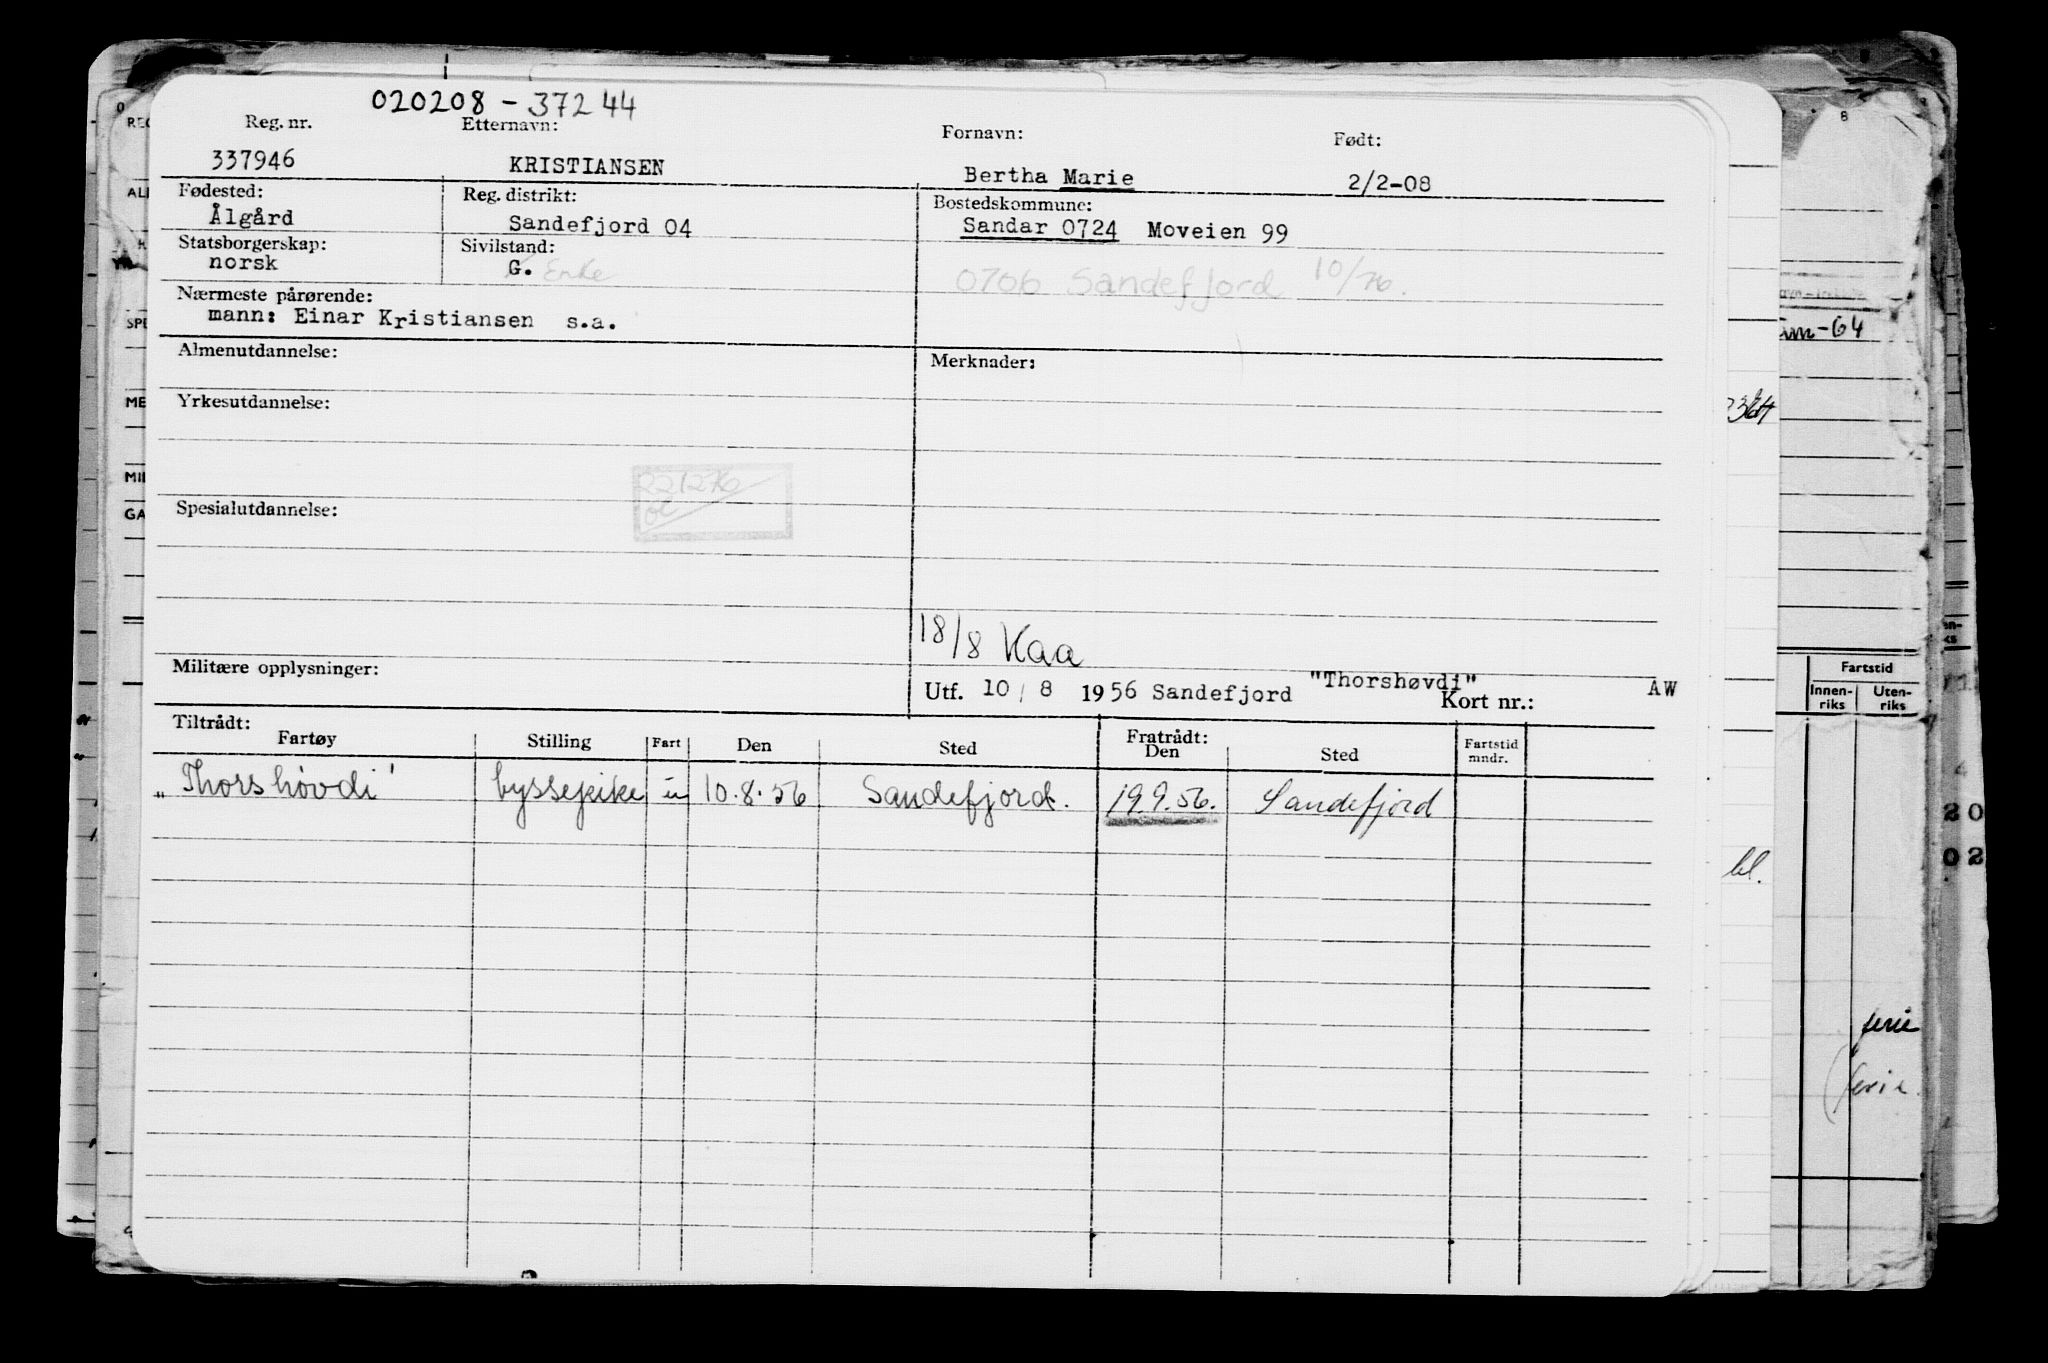 020208 - 37244
Reg. nr. Etternavn: Fornavn: Født:
337946 KRISTIANSEN Bertha Marie 2/2-08
Fødested: Reg. distrikt: Bostedskommune:
Ålgård Sandefjord 04 Sandar 0724 Moveien 99
Statsborgerskap: Sivilstand:
norsk G. Enke 0706 Sandefjord 10/76.
Nærmeste pårørende:
mann: Einar Kristiansen s.a.
Almenutdannelse: Merknader:
Yrkesutdannelse:
221276
Spesialutdannelse:
18/8 Kaa
Militære opplysninger:
Utf. 10/8 1956 Sandefjord "Thorshøvdi" Kort nr.: AW
Tiltrådt: Fratrådt:
Fartøy Stilling Fart Den Sted Den Sted Fartstid mndr.
„Thorshövdi' byssepike u 10.8.56 Sandefjord. 19.9.56. Sandefjord
Fartstid
Innen-riks Uten-riks
-64
bl.
ferie
ferie.
20
02